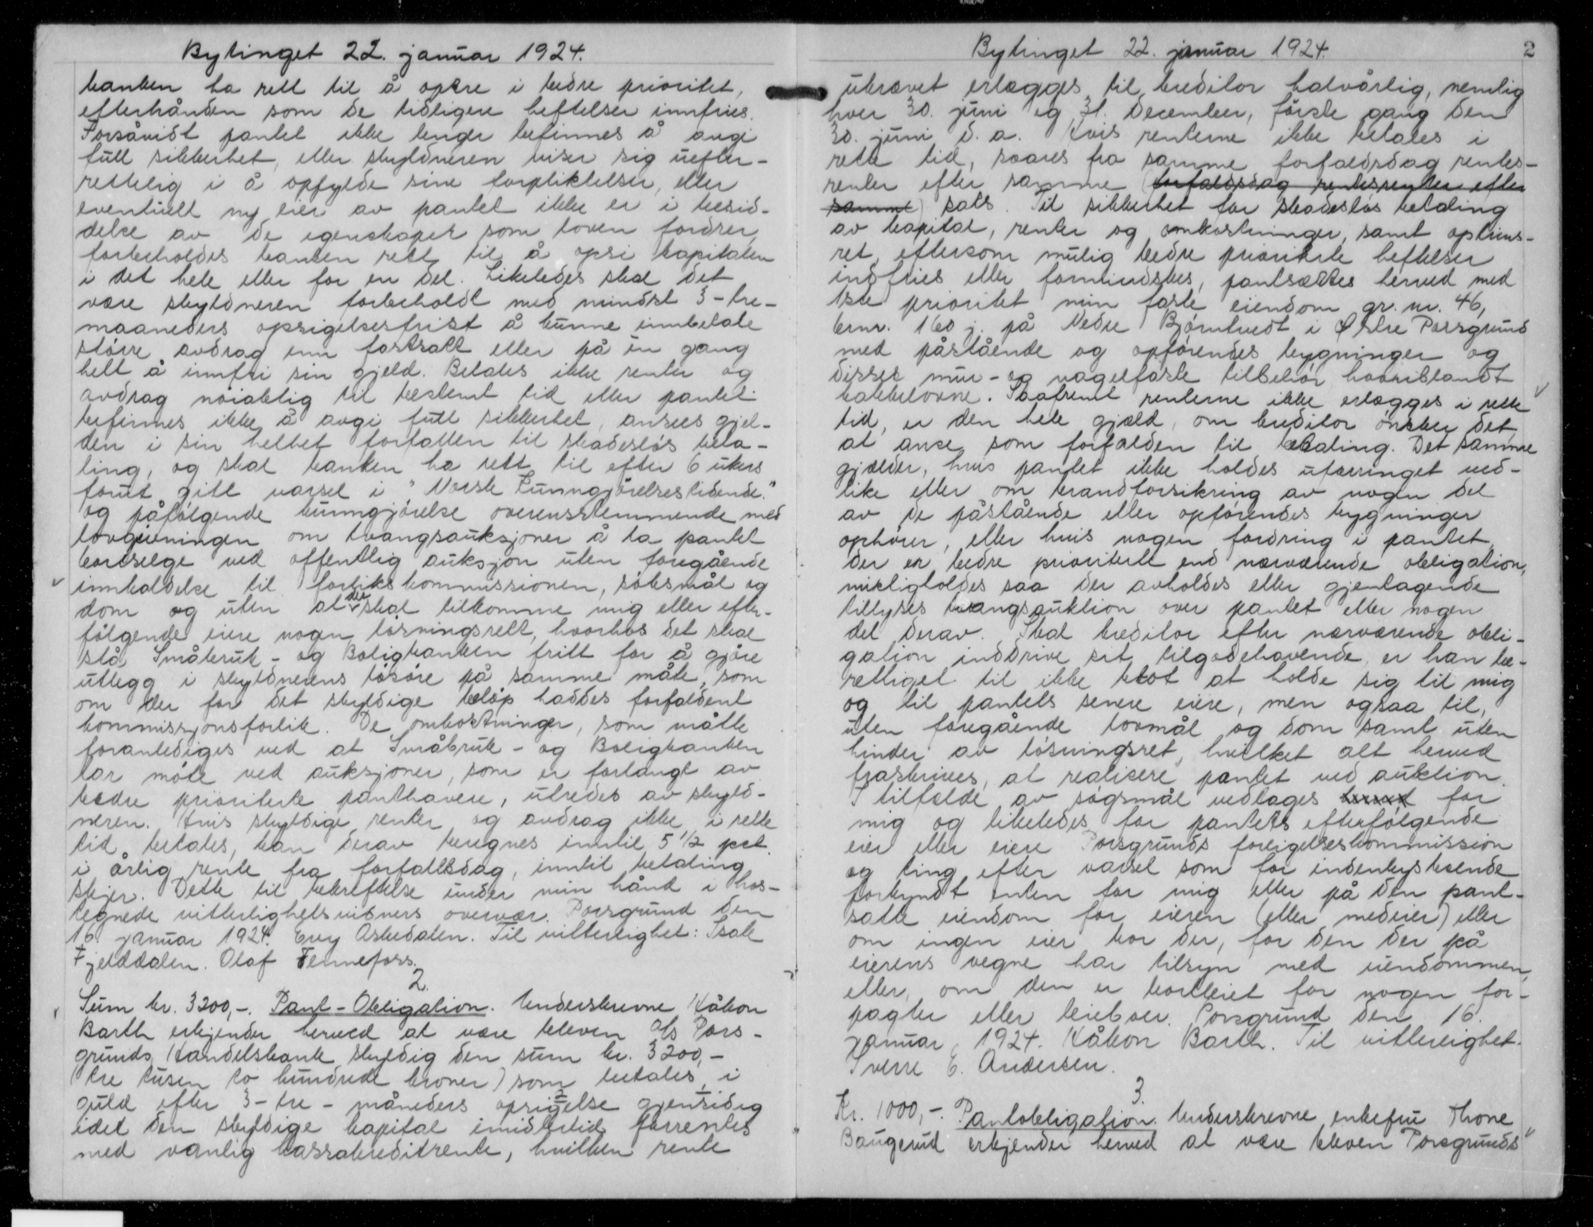 Bytinget 22. januar 1924.
banken ha rett til å opere i bedre prioritet,
efterhånden som de tidligere heftelser innfries.
Forsåvidt pantet ikke lenger befinnes å avgi
full sikkerhet, eller skyldneren viser sig uefter-
rettelig i å opfylde sine forpliktelser, eller
eventuell ny eier av pantet ikke er i besid-
delse av de egenskaper som loven fordrer,
forbeholdes banken rett til å opsi kapitalen
i det hele eller for en del. Likeledes skal det
være skyldneren forbeholdt med mindst 3-tre-
maaneders opsigelsesfrist å kunne innbetale
større avdrag enn fastsatt eller på en gang
helt å innfri sin gjeld. Betales ikke renter og
avdrag nøiaktig til bestemt tid eller pantet
befinnes ikke å avgi full sikkerhet, ansees gjel-
den i sin helhet forfallen til skadesløs beta-
ling, og skal banken ha rett til efter 6 ukers
forut gitt varsel i "Norsk Kunngjørelsestidende."
og påfølgende kunngjørelse overensstemmende med
lovgivningen om tvangsauksjoner å la pantet
bortselge ved offentlig auksjon uten foregående
innkaldelse til forlikskommissionen, søksmål og
dom og uten at der skal tilkomme mig eller efter-
følgende eiere nogen løsningsrett, hvorhos det skal
stå Småbruk- og Boligbanken fritt for å gjøre
utlegg i skyldnerens løsøre på samme måte, som
om der for det skyldige beløp haddes forfaldent
kommissjonsforlik. De omkostninger, som måtte
foranlediges ved at Småbruk- og Boligbanken
tar møte ved auksjoner, som er forlangt av
bedre prioriterte panthavere, utredes av skyld-
neren. Hvis skyldige renter og avdrag ikke i rette
tid betales, kan derav beregnes inntil 5 1/2 pct.
i årlig rente fra forfallsdag, inntil betaling
skjer. Dette til bekreftelse under min hånd i hos-
tegnede vitterlighetsvidners overvær. Porsgrund den
16. januar 1924. Evry Askedalen. Til vitterlighet: Isak
Fjelddalen. Olaf Tennefoss.
2.
Sum kr. 3200,-. Pant-Obligation. Underskrevne Håkon
Barth erkjender herved at være bleven A/S Pors-
grunds Handelsbank skyldig den sum kr. 3200,-
(tre tusen to hundrede kroner) som betales i
guld efter 3-tre-måneders opsigelse gjensidig
idet den skyldige kapital imidlertid forrentes
med vanlig kassakreditrente, hvilken rente
Bytinget 22. januar 1924.
2
ukrævet erlægges til kreditor halvårlig, nemlig
hver 30. juni og 31. december, første gang den
30. juni d. a. Hvis renterne ikke betales i
rette tid, svares fra samme forfaldsdag rentes-
renter efter samme (forfaldsdag rentesrenter efter
samme) sats. Til sikkerhet for skadesløs betaling
av kapital, renter og omkostninger, samt oprinds-
ret, eftersom mulig bedre priorite heftelser
indfries eller formindskes, pantsættes herved med
1ste prioritet min faste eiendom gr. nr. 46,
brnr. 160 j. på Nedre Bjørntvedt i Østre Porsgrund
med påstående og opførendes bygninger og
disses mur- og nagelfaste tilbehør hvoriblandt
kakkelovne. Saafremt renterne ikke erlægges i rette
tid, er den hele gjæld, om kreditor ønsker det,
at anse som forfalden til betaling. Det samme
gjælder, hvis pantet ikke holdes uforringet ved-
like eller om brandforsikring av nogen del
av de påstående eller opførendes bygninger
ophører, eller hvis nogen fordring i pantet,
der er bedre prioritert end nærværende obligation,
misligholdes saa der avholdes eller gjentagende
tillyses tvangsauktion over pantet eller nogen
del derav. Skal kreditor efter nærværende obli-
gation inddrive sit tilgodehavende, er han be-
rettiget til ikke blot at holde sig til mig
og til pantets senere eiere, men ogsaa til,
uten foregående lovmål og dom samt uten
hinder av løsningsret, hvilket alt herved
fraskrives, at realisere pantet ved auktion.
I tilfælde av søgsmål vedtages for
mig og likeledes for pantets efterfølgende
eier eller eiere Porsgrunds forligelseskommission
og ting efter varsel som for indenbysboende
forkyndt enten for mig eller på den pant-
satte eiendom for eieren (eller medeier) eller
om ingen eier bor der, for den der på
eierens vegne har tilsyn med eiendommen,
eller, om den er bortleiet for nogen for-
pagter eller leieboer. Porsgrund den 16.
januar 1924. Håkon Barth. Til vitterlighet.
Sverre E. Andersen.
3.
Kr. 1000,-. Pantobligation. Underskrevne enkefru Thone
Baugerud erkjender herved at være bleven Porsgrunds